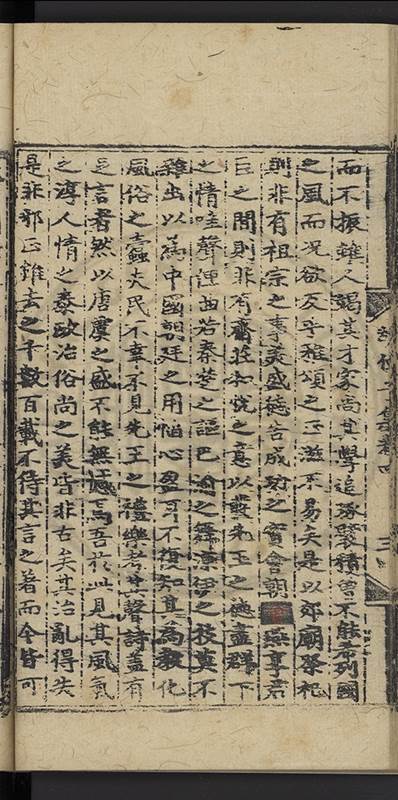 而不振雖人竭其才家尚其學追琢襞積曾不能希列國
之風而况欲反乎雅頌之正滋不易矣是以郊廟祭祀
則非有祖宗之事美盛德告成功之實會朝燕享君
臣之間則非有齋莊和悅之意以發先王之德盡群下
之情哇聲俚曲若秦楚之謳巴渝之舞涼伊之技莫不
雜出以爲中國朝廷之用惱心盈耳不復知其爲教化
風俗之蠹矣民不幸不見先王之禮樂考其聲詩蓋有
言者然以唐虞之盛不能無憾焉吾於此見其風氣
之淳人情之泰政治俗尚之美皆非古矣其治亂得失
是非邪正雖去之千數百載不待其言之著而今皆可
集卷四
三